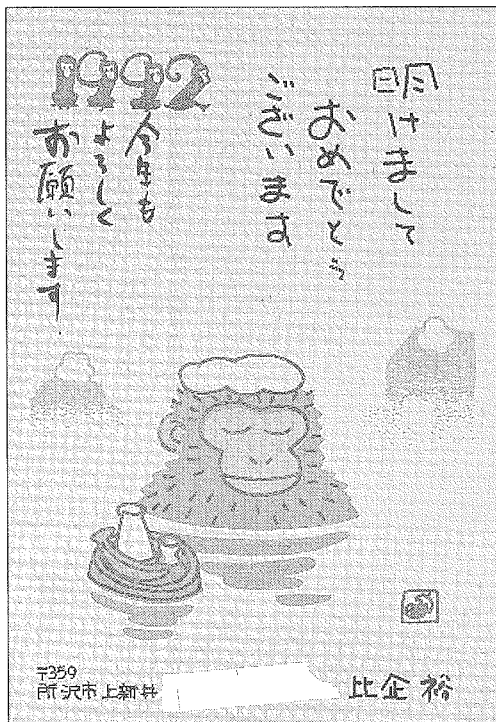 明けまして
おめでとう
ございます
1992
今年も
よろしく
お願いします.
〒359
所沢市上新井
比企 裕